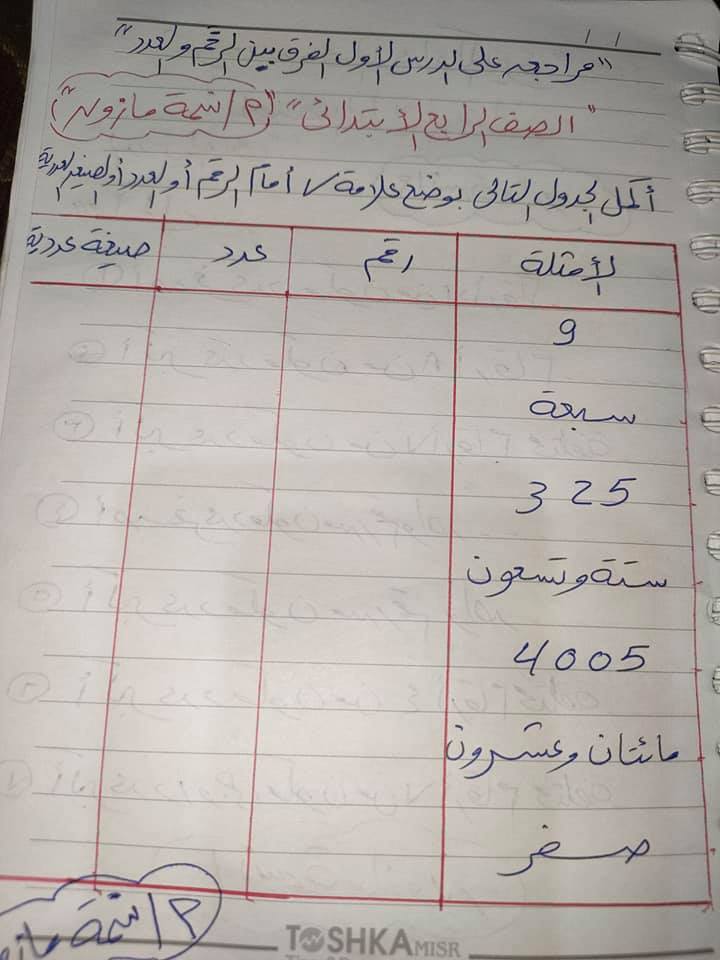 "مراجعه على الدرس الأول الفرق بين الرقم والعدد"
"الصف الرابع الابتدائى" "م/ نمة مازون"
أكمل الجدول التالى بوضع علامة √ أمام الرقم أو العدد أو الصيغة العددية
الأمثلة رقم عدد صيغة عددية
9
سبعة
325
ستة وتسعون
4005
مائتان وعشرون
صفر
م/ نمة
TOSHKA MISR